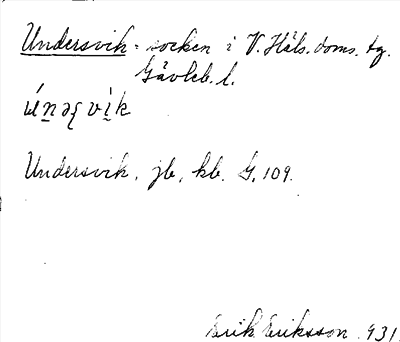 Undersvik = socken i V. Häls. doms. tg.
Gävleb. l.
Undersvik, jb, kb. G. 109.
Erik Eriksson 931